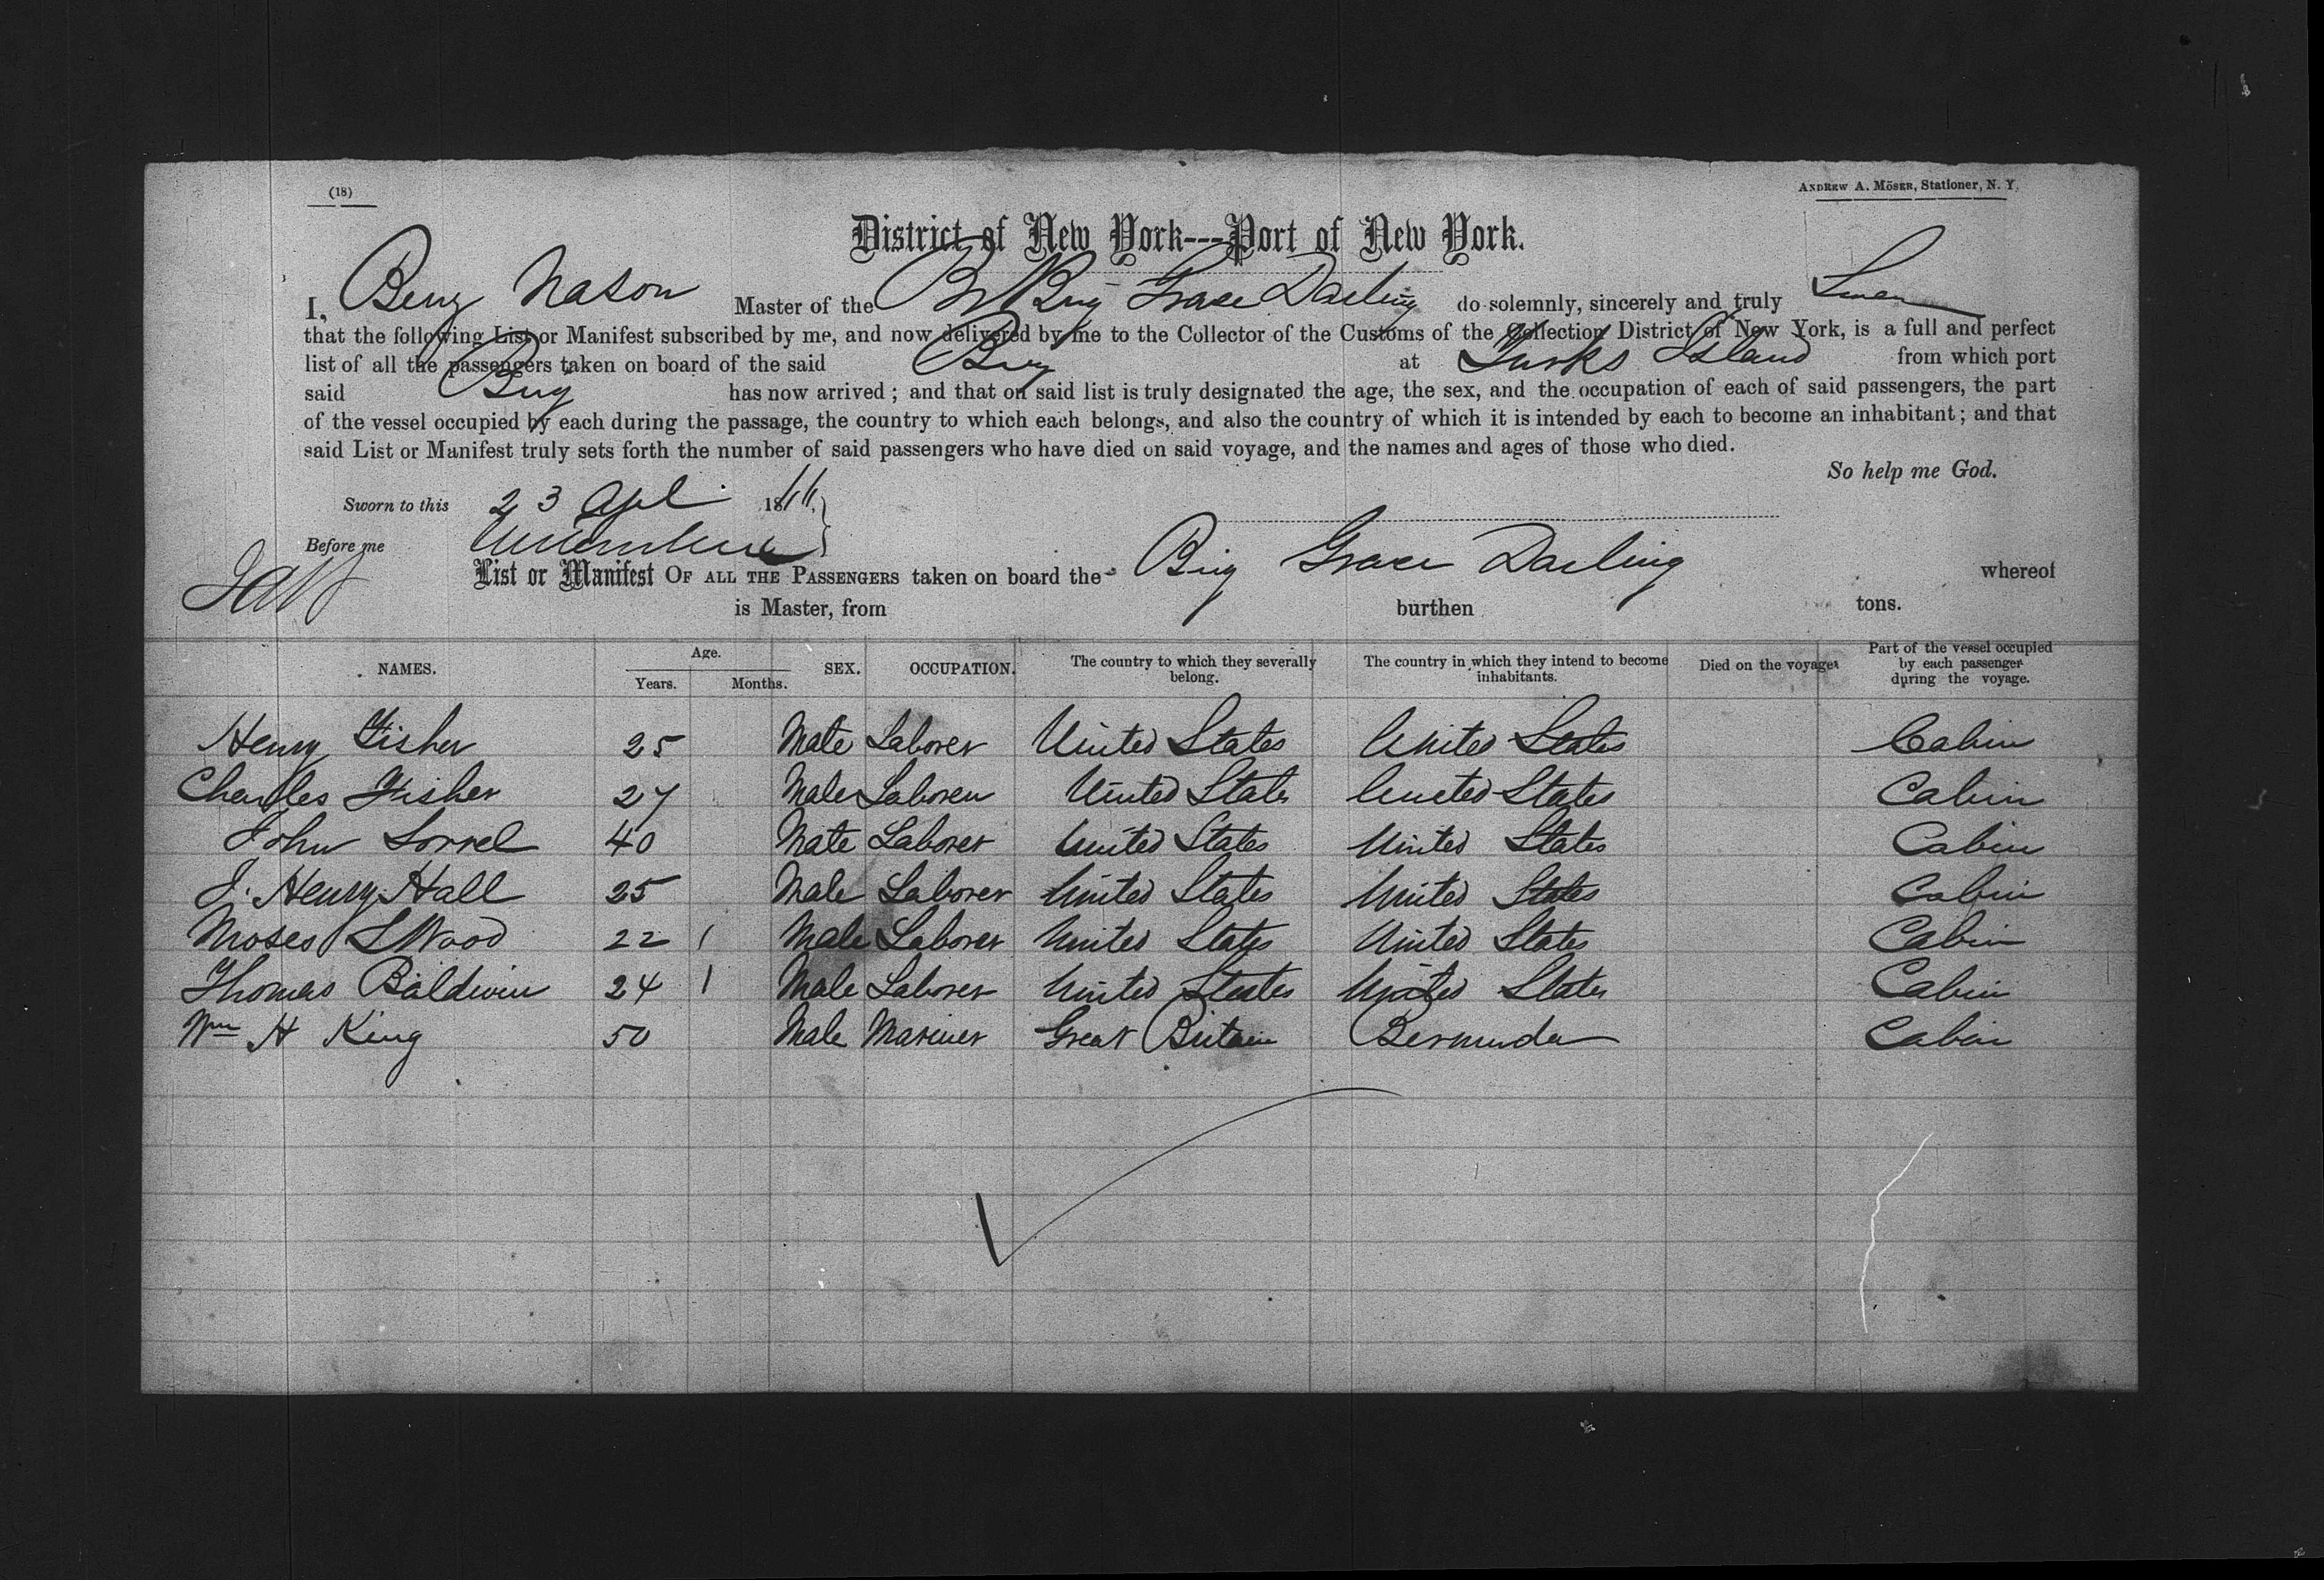 (18)
ANDREW A. MÖSER, Stationer, N. Y.
District of New York---Port of New York.
I, Benj Nason Master of the Br Brig Grace Darling do solemnly, sincerely and truly Swear
that the following List or Manifest subscribed by me, and now delivered by me to the Collector of the Customs of the Collection District of New York, is a full and perfect
list of all the passengers taken on board of the said Brig at Turks Island from which port
said Brig has now arrived; and that on said list is truly designated the age, the sex, and the occupation of each of said passengers, the part
of the vessel occupied by each during the passage, the country to which each belongs, and also the country of which it is intended by each to become an inhabitant; and that
said List or Manifest truly sets forth the number of said passengers who have died on said voyage, and the names and ages of those who died.
So help me God.
Sworn to this 23 Apl 1866
Before me
List or Manifest OF ALL THE PASSENGERS taken on board the Brig Grace Darling whereof
is Master, from burthen tons.
NAMES. Age. Years. Months. SEX. OCCUPATION. The country to which they severally belong. The country in which they intend to become inhabitants. Died on the voyage. Part of the vessel occupied by each passenger during the voyage.
Henry Fisher 25 Male Laborer United States United States Cabin
Charles Fisher 27 Male Laborer United States United States Cabin
John Sorrel 40 Male Laborer United States United States Cabin
J. Henry Hall 25 Male Laborer United States United States Cabin
Moses L Wood 22 1 Male Laborer United States United States Cabin
Thomas Baldwin 24 1 Male Laborer United States United States Cabin
Wm H King 50 Male Mariner Great Britain Bermuda Cabin